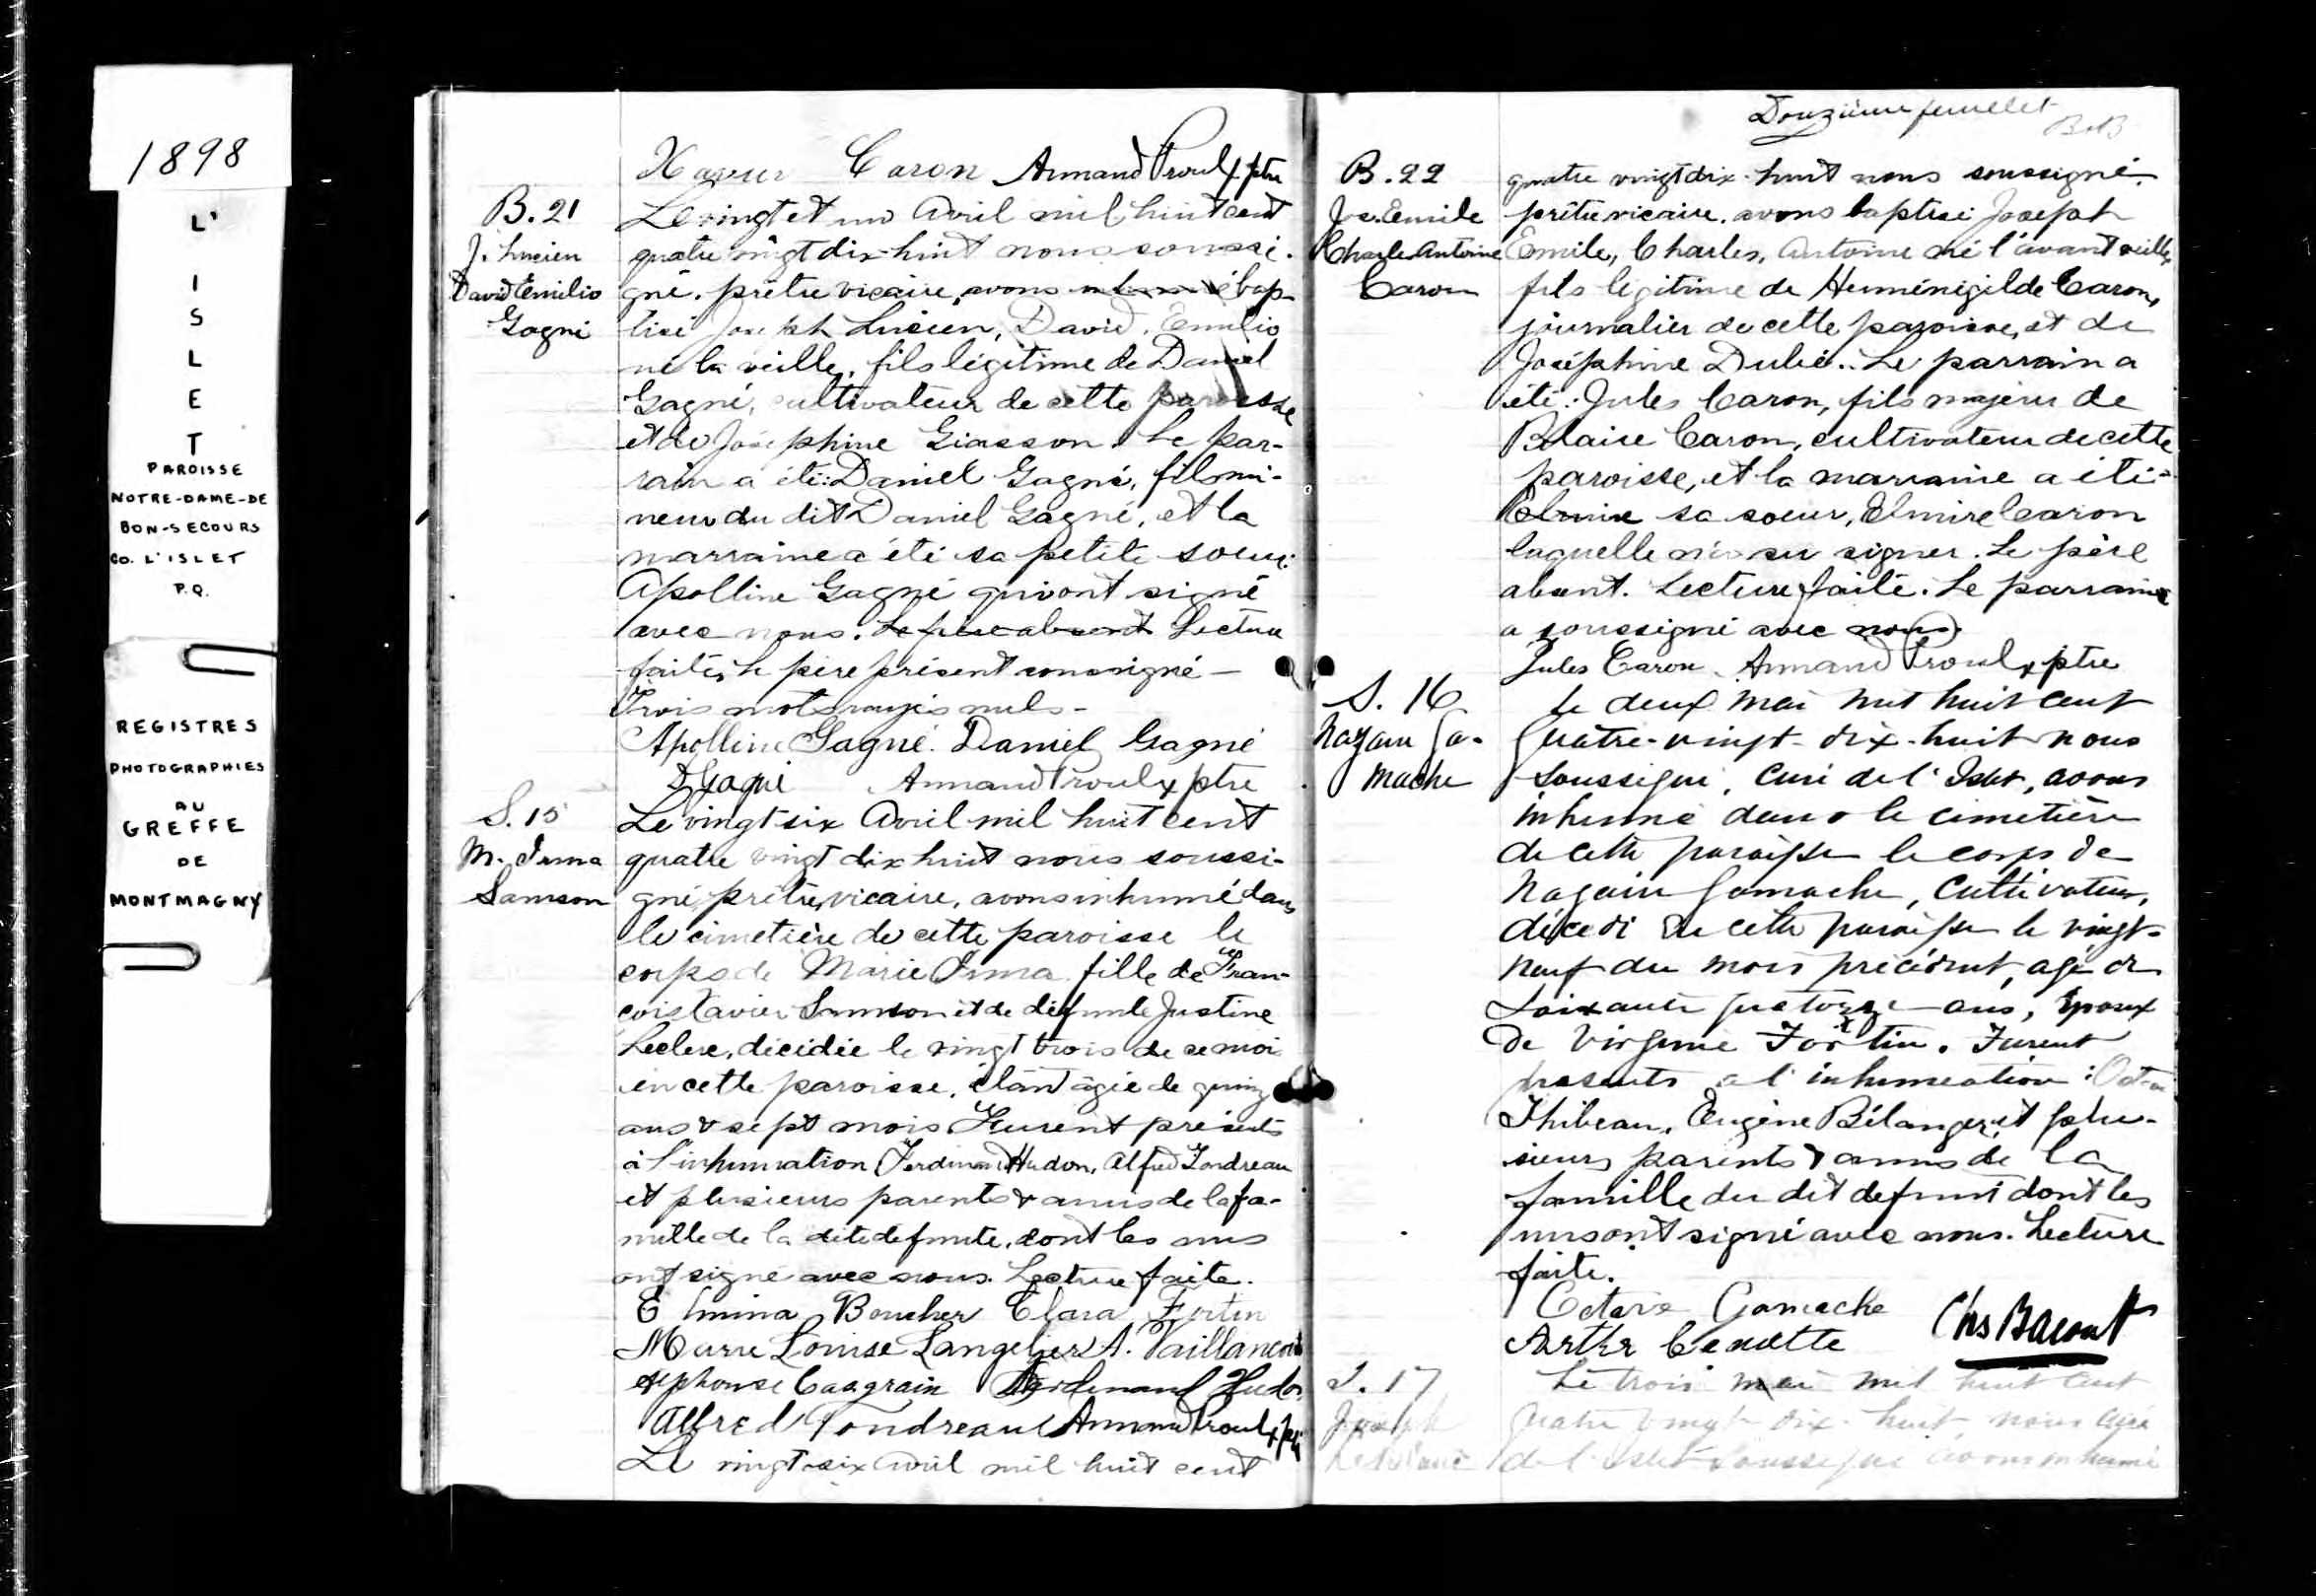 1898
L'
I
S
L
E
T
PAROISSE
NOTRE-DAME-DE
BON-SECOURS
CO. L'ISLET
P.Q.
REGISTRES
PHOTOGRAPHIES
AU
GREFFE
DE
MONTMAGNY
Xavier Caron Armand Proulx ptre
B. 21
J. Lucien
David Emilio
Gagné
Le vingt et un Avril mil huit cent
quatre vingt dix-huit nous soussi-
gné, prêtre vicaire, avons bap-
tisé Joseph Lucien, David, Emilio
né la veille, fils légitime de Daniel
Gagné, cultivateur de cette paroisse
et de Joséphine Giasson. Le par-
rain a été: Daniel Gagné, fils mi-
neur du dit Daniel Gagné, et la
marraine a été sa petite soeur:
Apolline Gagné qui ont signé
avec nous. Le père absent Lecture
faite, le père présent a soussigné —
Trois mots rayés nuls -
Apolline Gagné. Daniel Gagné
D Gagné Armand Proulx ptre
S. 15
M. Irma
Samson
Le vingt six Avril mil huit cent
quatre vingt dix huit nous soussi-
gné, prêtre, vicaire, avons inhumé dans
le cimetière de cette paroisse le
corps de Marie Irma fille de Fran-
çois Xavier Samson et de défunte Justine
Leclerc, décédée le vingt trois de ce moi
en cette paroisse, étant âgée de quinz
ans & sept mois. Furent présents
à l'inhumation Ferdinand Hudon, Alfred Tondreau
et plusieurs parents & amis de la fa-
mille de la dite defunte, dont les uns
ont signé avec nous. Lecture faite.
Elmina Boucher Clara Fortin
Marie Louise Langelier A. Vaillancourt
Alphonse Casgrain Ferdinand Hudon
Alfred Tondreau Armand Proulx ptre
Le vingt-six Avril mil huit cent
Douzième feuillet
B. 22
Jos. Emile
Charles Antoine
Caron
quatre vingt dix-huit nous soussigné,
prêtre vicaire, avons baptisé Joseph
Emile, Charles, Antoine né l'avant veille,
fils légitime de Herménégilde Caron,
journalier de cette paroisse, et de
Joséphine Dubé. Le parrain a
été: Jules Caron, fils majeur de
Blaise Caron, cultivateur de cette
paroisse, et la marraine a été
Elmire sa soeur, Elmire Caron
laquelle n'a su signer. Le père
absent. Lecture faite. Le parrain
a soussigné avec nous.
Jules Caron. Armand Proulx ptre
S. 16
Nazaire Ga-
mache
Le deux mai mil huit cent
quatre-vingt-dix-huit nous
soussigné, curé de l'Islet, avons
inhumé dans le cimetière
de cette paroisse le corps de
Nazaire Gamache, cultivateur,
décédé de cette paroisse le vingt-
neuf du mois précédent, agé de
soixante quatorze ans, époux
de Virginie Fortin. Furent
présents à l'inhumation: Octave
Thibeau, Eugène Bélanger et plu-
sieurs parents & amis de la
famille du dit defunt dont les
uns ont signé avec nous. Lecture
faite.
Octave Gamache Chs Bacon Ptr
Arthr
S. 17
Joseph
Le trois mai mil huit cent
quatre vingt dix-huit, nous curé
de l'Islet soussigné avons inhumé